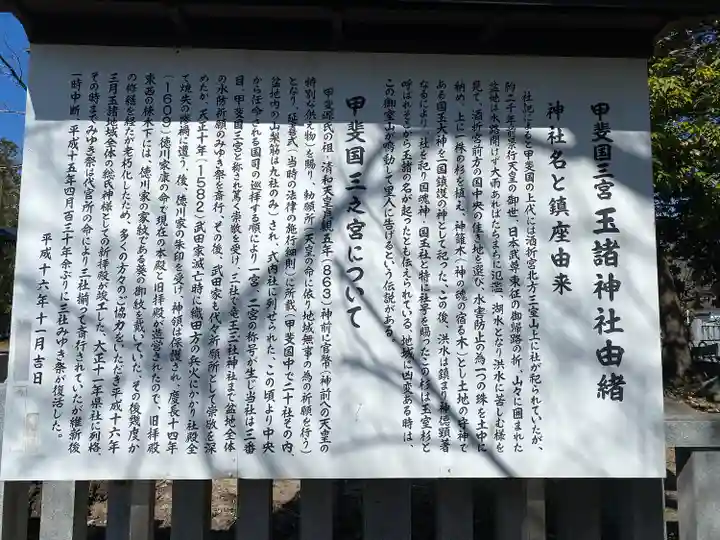 甲斐国三宮 玉諸神社由緒
神社名と鎮座由来
社記によると甲斐国の上代には酒折宮北方三室山上に社が祀られていたが、
約二千年前景行天皇の御世、日本武尊東征の御帰路の折、山々に囲まれた
盆地は水路開けず大雨あればたちまちに氾濫、湖水となり洪水に苦しむ様を
見て、酒折宮前方の国中央の住よき地を選び、水害防止の為一つの珠を土中に
納め、上に一株の杉を植え、神籬木(神の魂の宿る木)とし土地の守神で
ある国玉大神を(国鎮護の神として祀った。この後、洪水は鎮まり神徳顕著
なるにより、社を建わり国魂神・国玉社と特に社号を賜ったこの杉は玉室杉と
呼ばれそこから玉諸の名が起ったとも伝えられている。地域に凶変ある時は、
この御室山が鳴動して里人に告げるという伝説がある。
甲斐国三之宮について
甲斐源氏の祖、清和天皇貞観五年(863)神前に官幣(神前への天皇の
特別な供定物)を賜り、勅願所(天皇の命に依り地域無事の為の祈願を行う)
となり、延喜式(当時の法律の施行細則)に所載(甲斐国中で二十社その内、
盆地内の山梨筋は九社のみ)され、式内社に列せられた。この頃より中央
から任命される国司の巡拝する順により一宮、二宮の称号が生じ当社は三番
目、甲斐国三之宮と称され篤く崇敬を受け、三社で竜王三社神社まで盆地全体
の水防祈願のみゆき祭を斎行、その後、武田家も代々祈願所として崇敬を深
めたか、天正十年(1582)武田家滅亡時に織田方の兵火にかかり社殿全
て焼失の災禍に遭う。後、徳川家の朱印を受け、神領は保護され、慶長十四年
(1609)徳川家康の命で現在の本殿と旧拝殿が造営されたので、旧拝殿
東西の棟木下には、徳川家の家紋である葵の御紋を戴いていた。その後幾度か
の修繕を経たが老朽化したため、多くの方々のご協力をいただき平成十六年
三月玉諸地域全体の総氏神様としての新拝殿が竣工した。大正十一年県社に列格
その時までみゆき祭は代官所の命により三社揃って斎行されていたが維新後
一時中断、平成十五年四月百三十年余ぶりに三社みゆき祭が復活した。
平成十六年十一月吉日